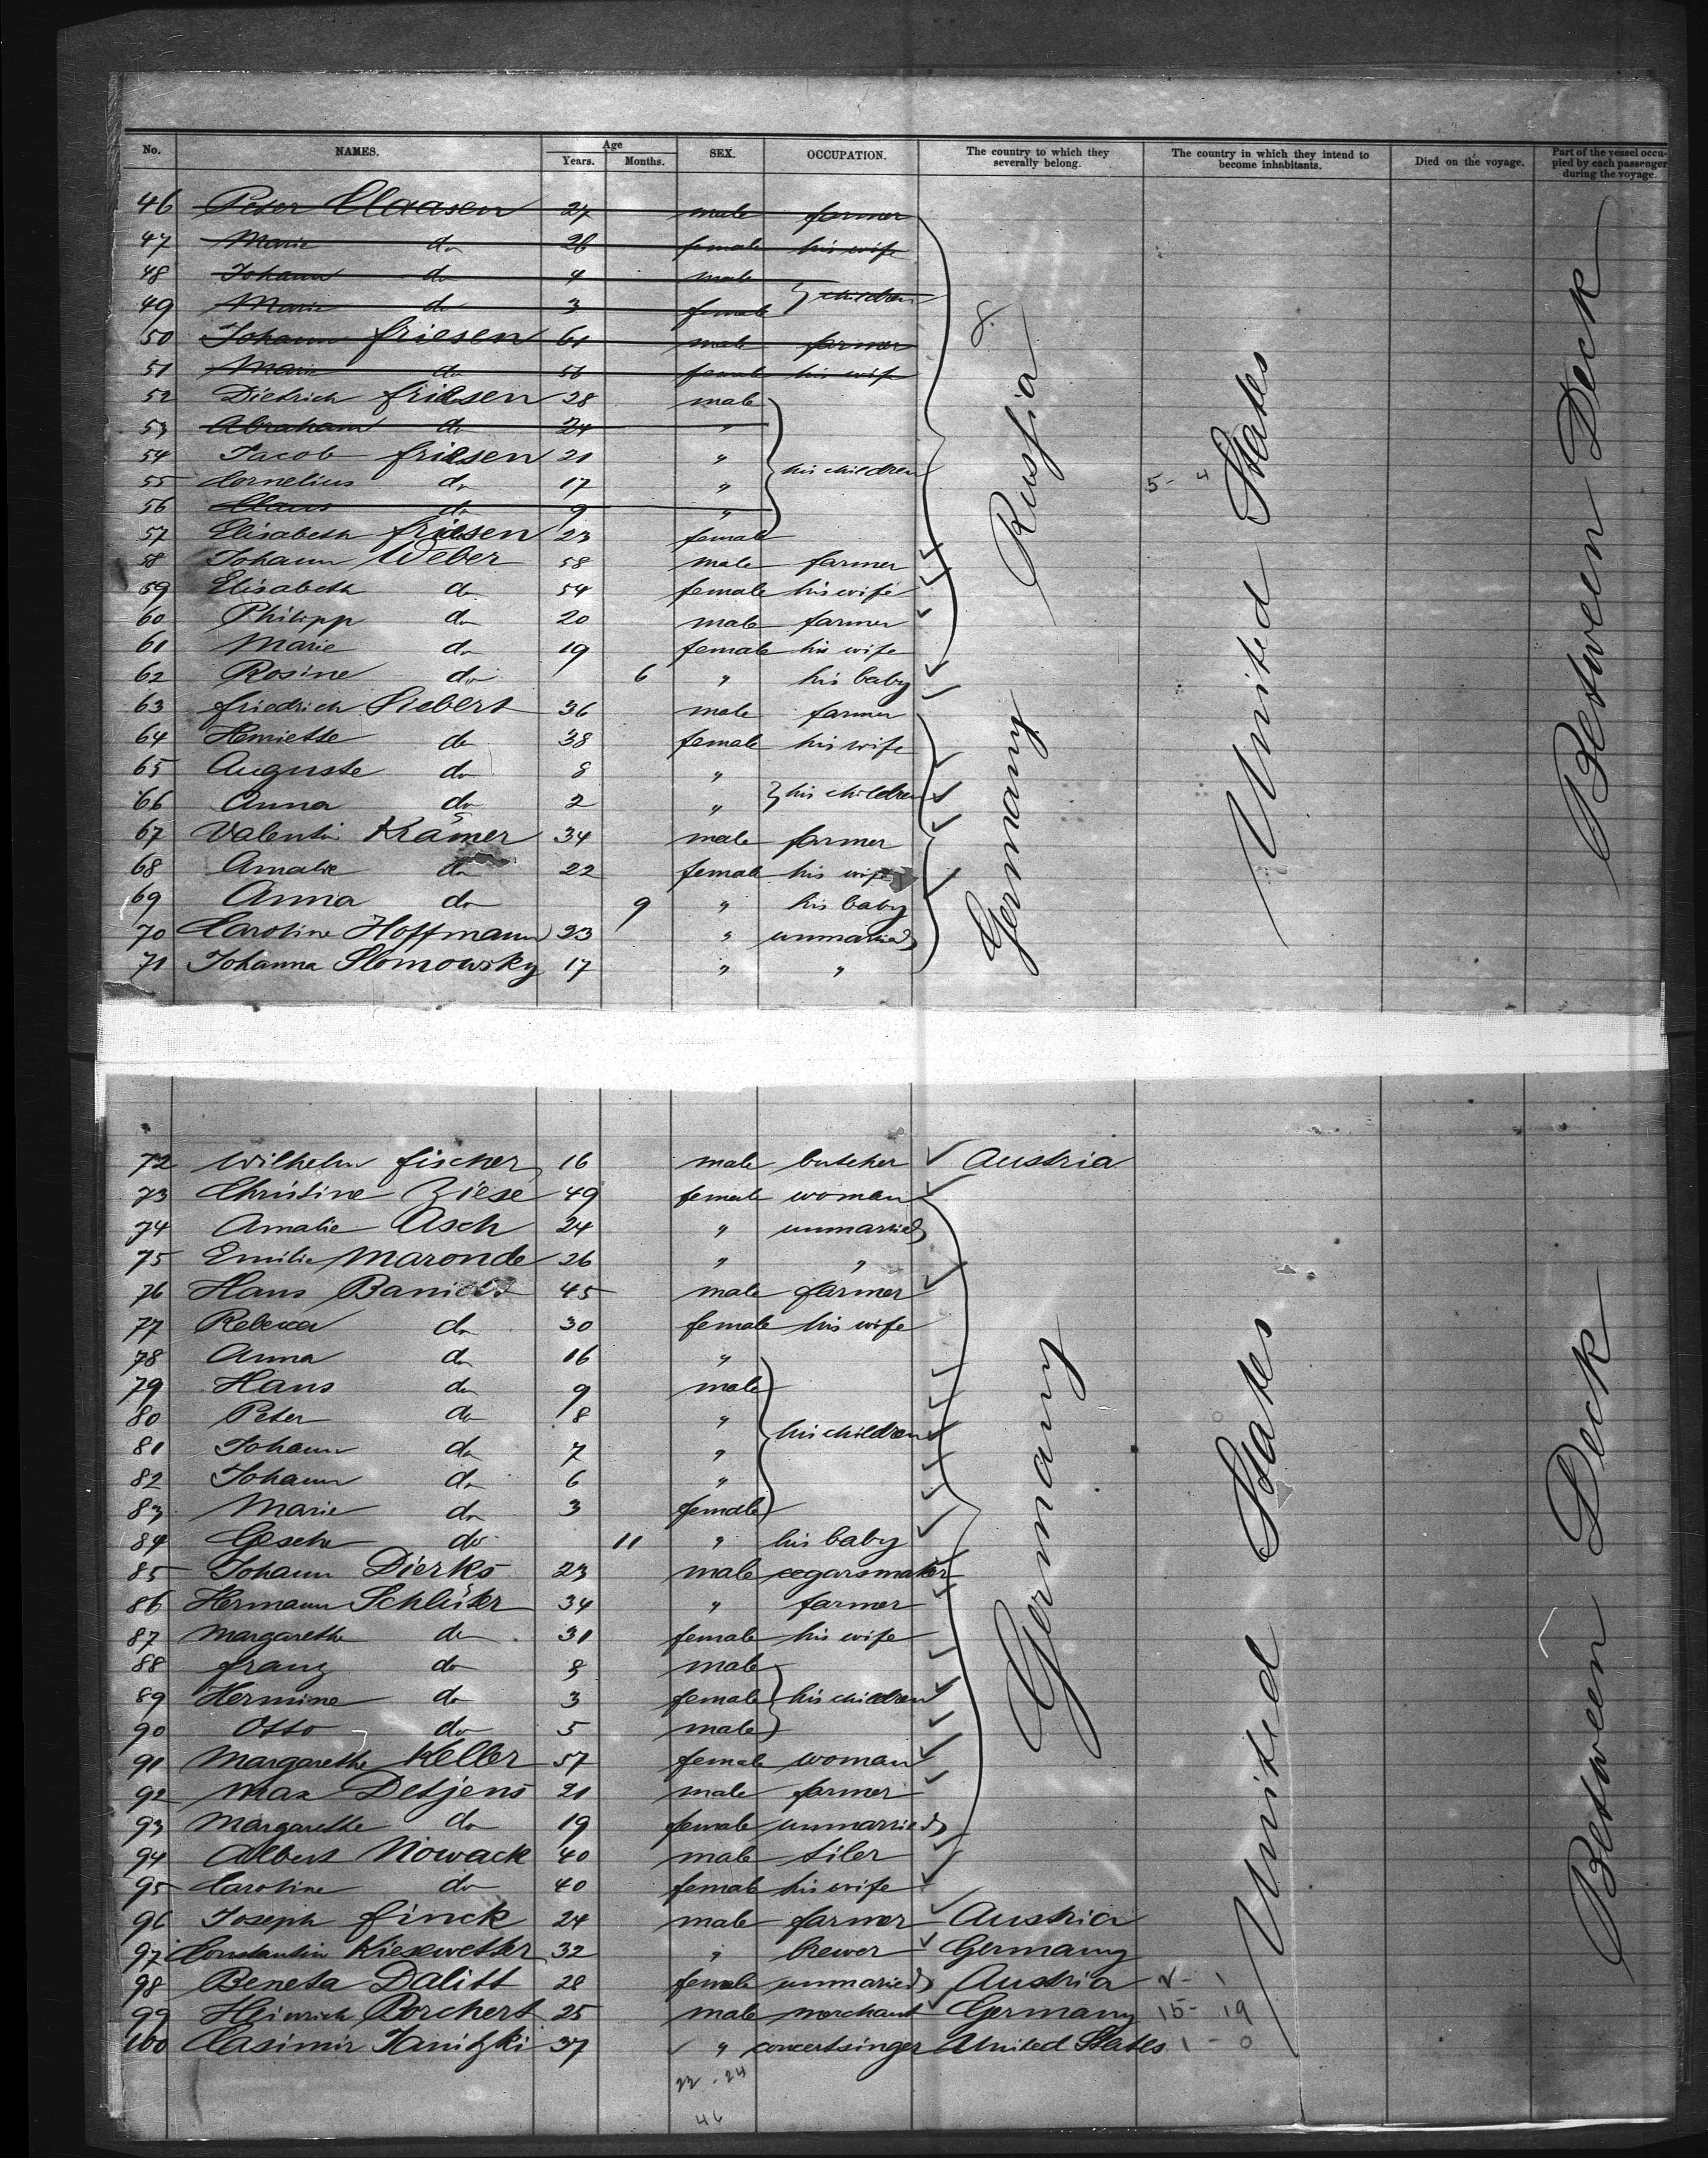 No. NAMES. Age Years. Months. SEX. OCCUPATION. The country to which they severally belong. The country in which they intend to become inhabitants. Died on the voyage. Part of the vessel occupied by each passenger during the voyage.
46 Peter Claasen 27 male farmer
47 Marie do 26 female his wife
48 Johann do 4 male
49 Marie do 3 female } children
50 Johann Friesen 61 male farmer
51 Marie do 56 female his wife
52 Dietrich Friesen 28 male
53 Abraham do 24 "
54 Jacob Friesen 21 " his children
55 Cornelius do 17 "
56 Claus do 9 "
57 Elisabeth Friesen 23 female
58 Johann Weber 58 male farmer
59 Elisabeth do 54 female his wife
60 Philipp do 20 male farmer
61 Marie do 19 female his wife
62 Rosine do 6 " his baby
Russia
8.
5- 4
63 Friedrich Siebert 36 male farmer
64 Henriette do 38 female his wife
65 Auguste do 8 "
66 Anna do 2 " } his children
67 Valentin Krämer 34 male farmer
68 Amalie do 22 female his wife
69 Anna do 9 " his baby
70 Caroline Hoffmann 23 " unmarried
71 Johanna Slomowsky 17 " "
Germany
United States
Between Deck
72 Wilhelm Fischer 16 male butcher Austria
73 Christine Ziese 49 female woman
74 Amalie Asch 24 " unmarried
75 Emilie Maronde 26 " "
76 Hans 45 male farmer
77 Rebecca do 30 female his wife
78 Anna do 16 "
79 Hans do 9 male
80 Peter do 8 "
81 Johann do 7 " his children
82 Johann do 6 "
83 Marie do 3 female
84 Gesche do 11 " his baby
85 Johann Dierks 23 male cegarsmaker
86 Hermann Schlüter 34 " farmer
87 Margarethe do 31 female his wife
88 Franz do 8 male
89 Hermine do 3 female his children
90 Otto do 5 male
91 Margarethe Keller 57 female woman
92 Max Detjens 21 male farmer
93 Margarethe do 19 female unmarried
94 Albert Nowack 40 male tiler
95 Caroline do 40 female his wife
Germany
96 Joseph Finck 24 male farmer Austria
97 Constantin Kiesewetter 32 " brewer Germany
98 Beneta Dalitt 28 female unmaried Austria
99 Heinrich Borchert 25 male merchant Germany 15- 19
100 Casimir Janitzki 37 " concertsinger United States 1 - 0
United States
Between Deck
22 . 24
46